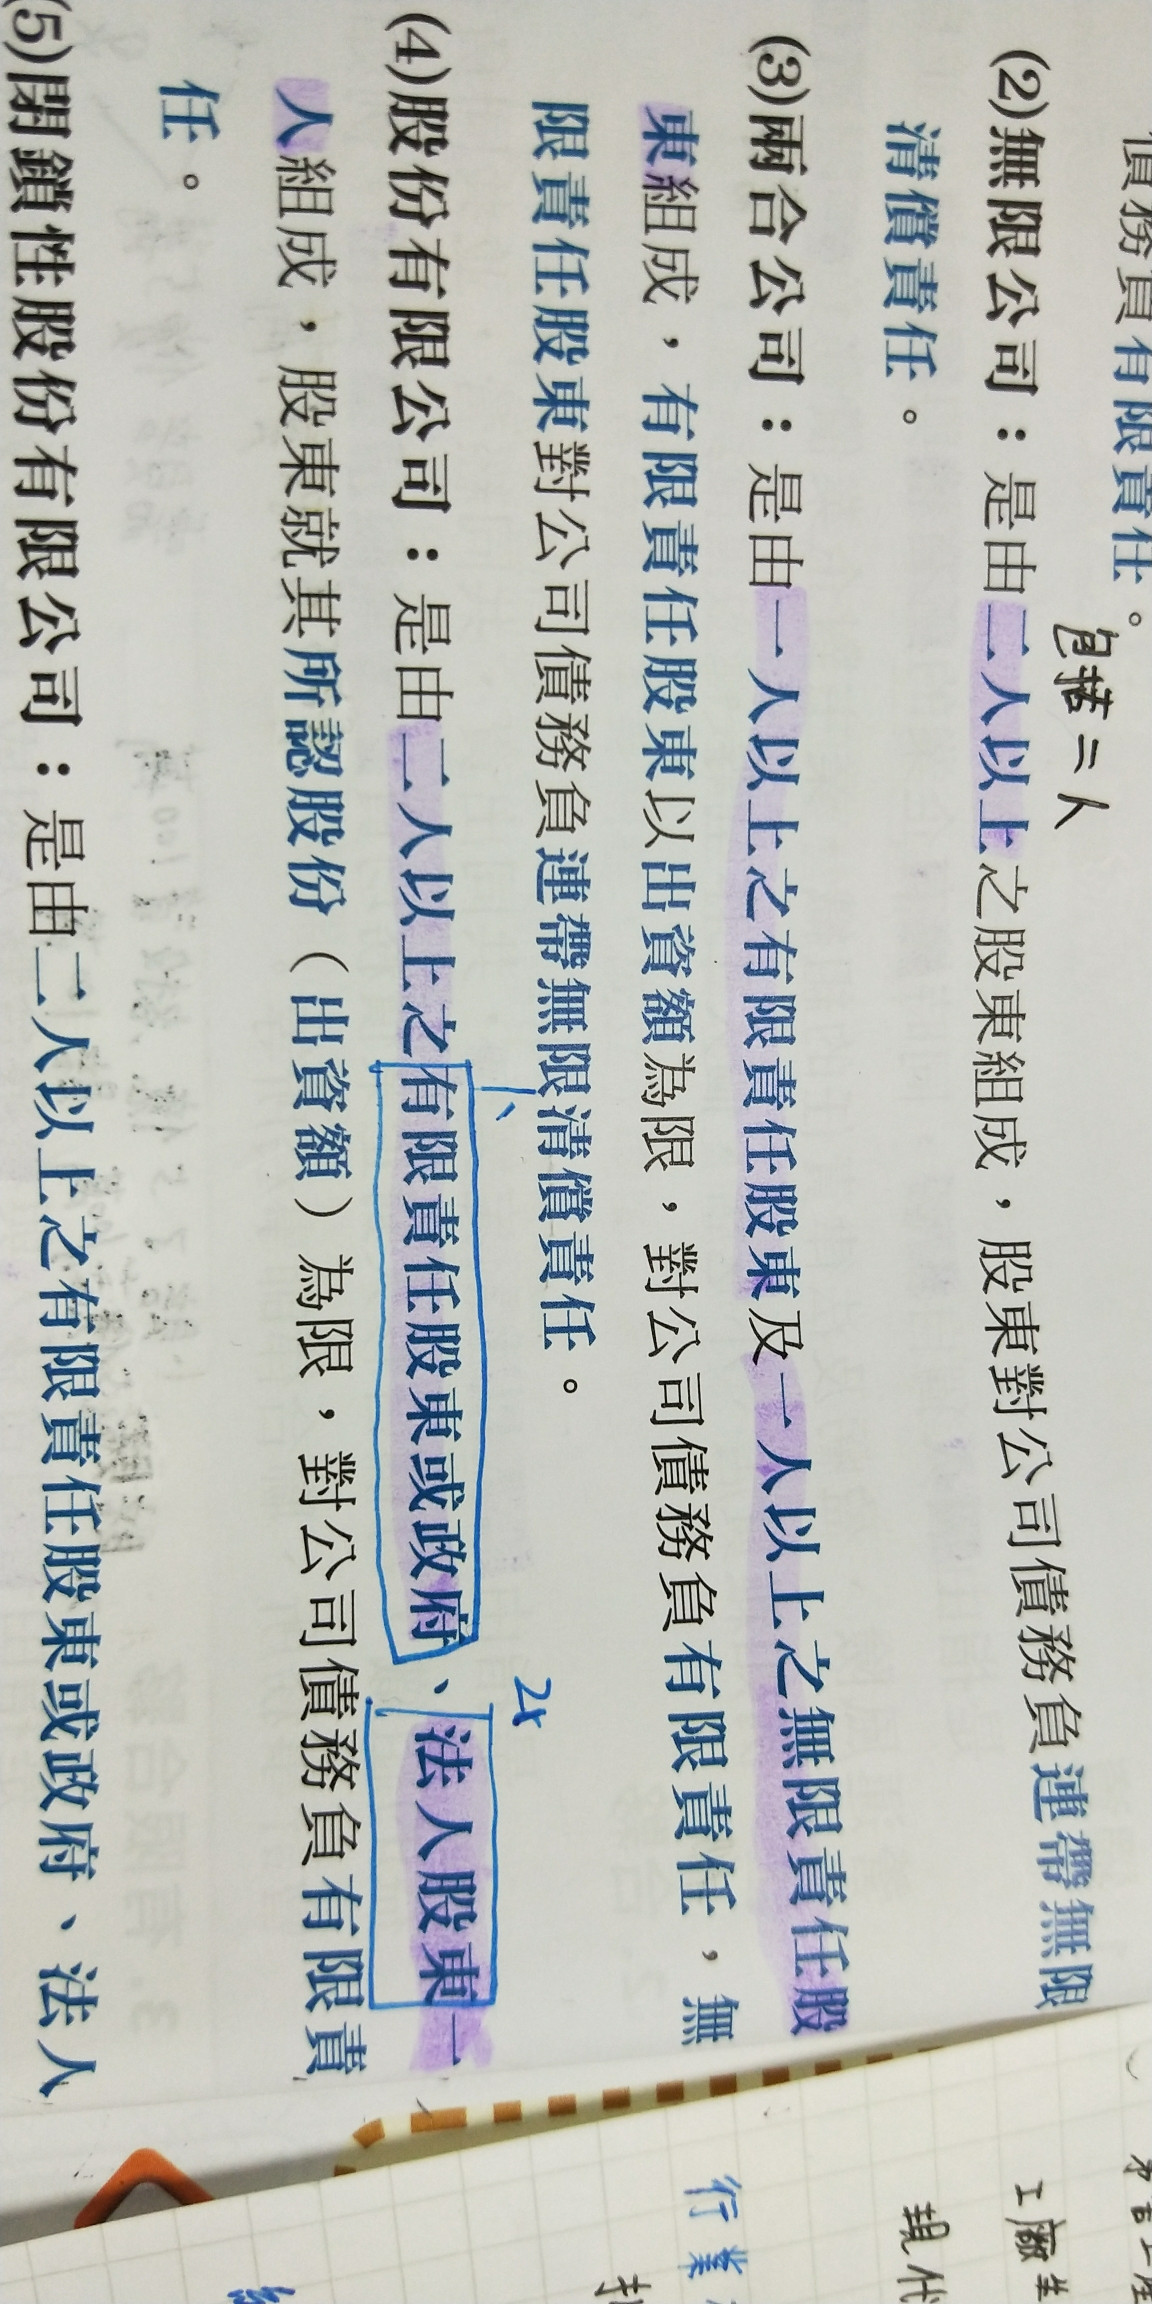 債務負有限責任。
包括二人
(2)無限公司：是由二人以上之股東組成，股東對公司債務負連帶無限
清償責任。
(3)兩合公司：是由一人以上之有限責任股東及一人以上之無限責任股
東組成，有限責任股東以出資額為限，對公司債務負有限責任，無
限責任股東對公司債務負連帶無限清償責任。
2x
(4)股份有限公司：是由二人以上之有限責任股東或政府、法人股東一
人組成，股東就其所認股份（出資額）為限，對公司債務負有限責
任。
(5)閉鎖性股份有限公司：是由二人以上之有限責任股東或政府、法人
工廠
現代
行業